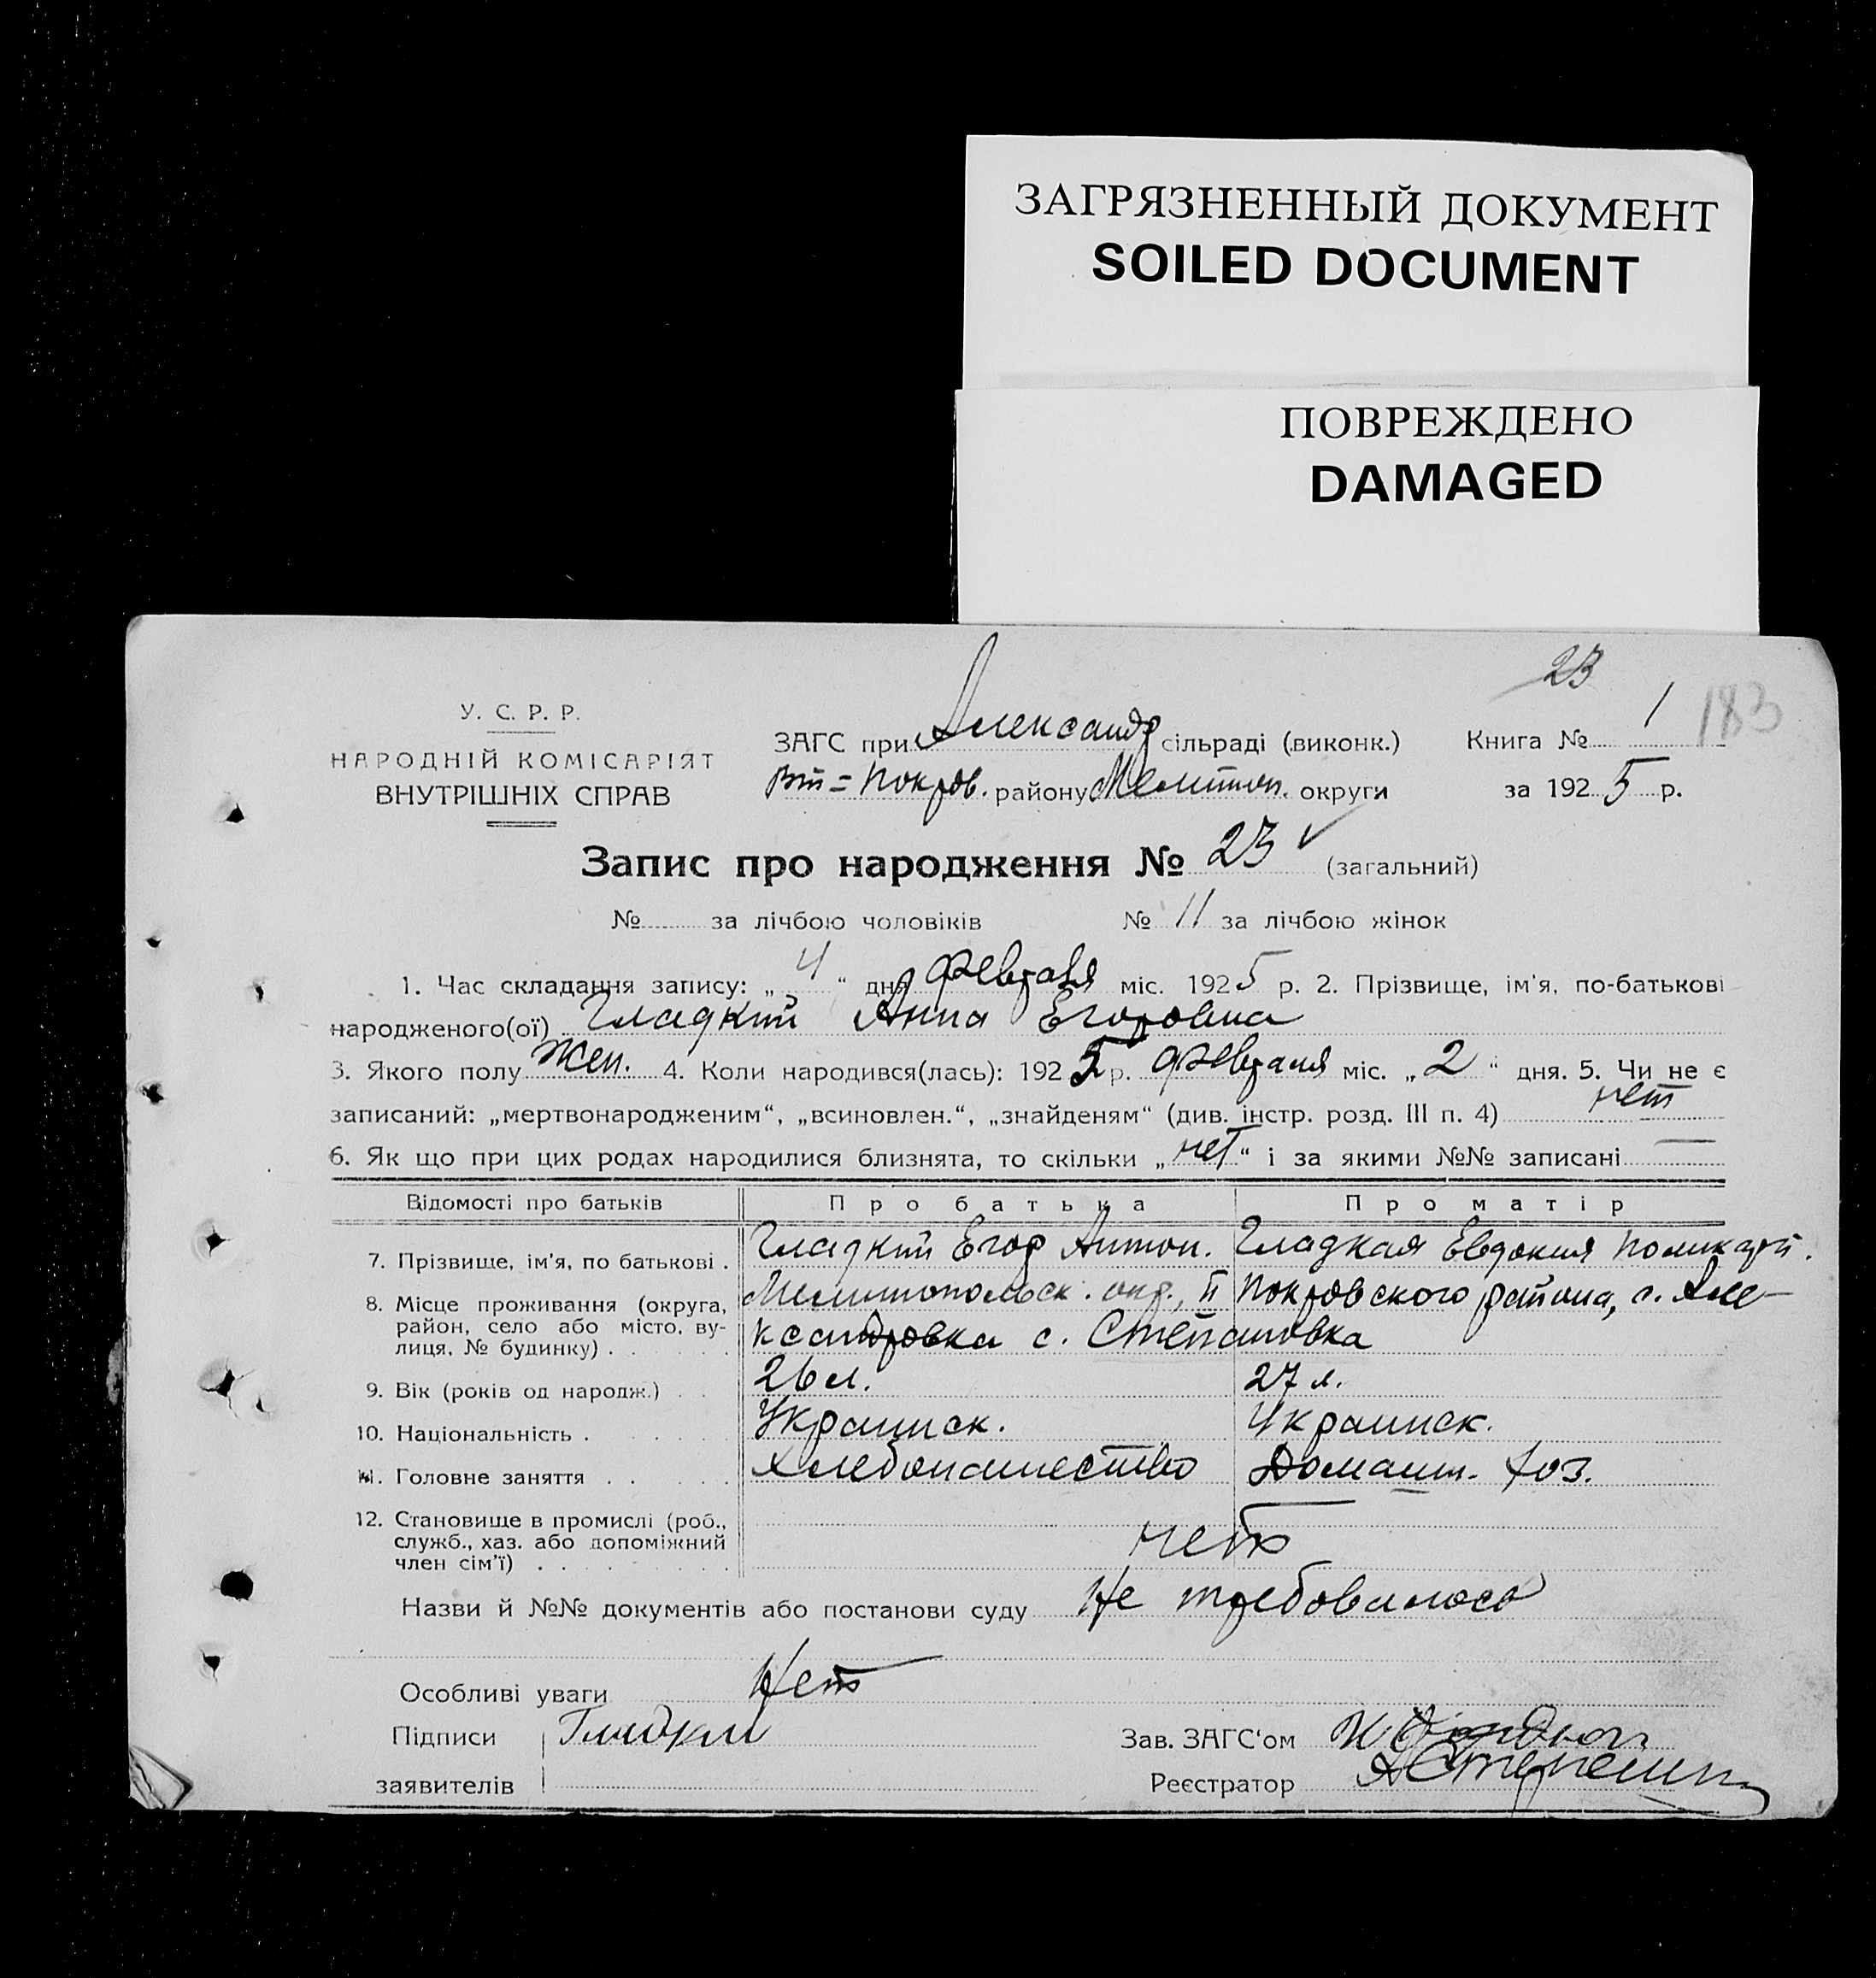 ЗАГРЯЗНЕННЫЙ ДОКУМЕНТ
SOILED DOCUMENT
ПОВРЕЖДЕНО
DAMAGED
23
183
У. С. Р. Р.
НАРОДНІЙ КОМІСАРІЯТ
ВНУТРІШНІХ СПРАВ
ЗАГС при Александр сільраді (виконк.) Книга № 1
Вт=Покров. району Мелитоп. округи за 1925 р.
Запис про народження № 23 (загальний)
№ за лічбою чоловіків № 11 за лічбою жінок
1. Час складання запису: „4“ дня февраля міс. 1925 р. 2. Прізвище, ім'я, по-батькові
народженого(ої) Гладкий Анна Егоровна
3. Якого полу жен. 4. Коли народився(лась): 1925 р. февраля міс. „2“ дня. 5. Чи не є
записаний: „мертвонародженим“, „всиновлен.“, „знайденям“ (див. інстр. розд. III п. 4) нет
6. Як що при цих родах народилися близнята, то скільки „нет“ і за якими №№ записані —
Відомості про батьків Про батька Про матір
7. Прізвище, ім'я, по батькові . Гладкий Егор Антон. Гладкая Евдокия Поликарп.
8. Місце проживання (округа, район, село або місто, вулиця, № будинку) . Мелитопольск. окр., II Покровского района, с. Але-
ксандровка с. Степановка
9. Вік (років од народж.) 26 л. 27 л.
10. Національність . Украинск. Украинск.
11. Головне заняття . Хлебопашество Домашн. хоз.
12. Становище в промислі (роб., служб., хаз. або допоміжний член сім'ї) . нет
Назви й №№ документів або постанови суду Не требовалось
Особливі уваги Нет
Підписи Гладкий Зав. ЗАГС'ом
заявителів Реєстратор